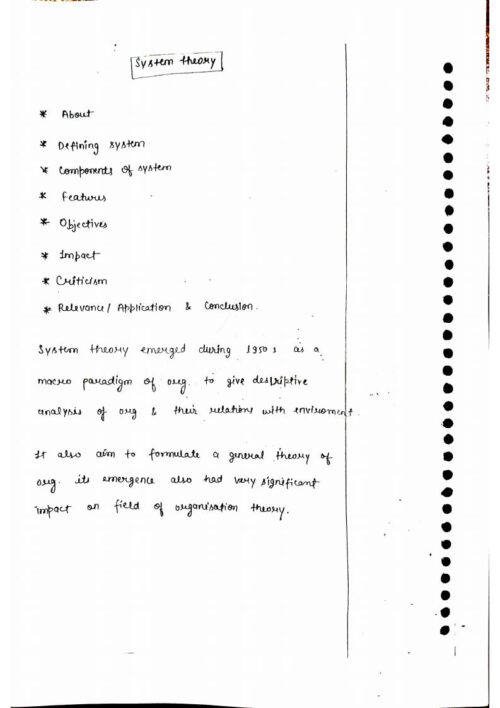 System theory
* About
* Defining system
* Components of system
* Features
* Objectives
* Impact
* Criticism
* Relevance/ Application & Conclusion.
System theory emerged during 1950s as a
macro paradigm of org. to give descriptive
analysis of org & their relations with enviroment.
It also aim to formulate a general theory of
org. its emergence also had very significant
impact on field of organisation theory.